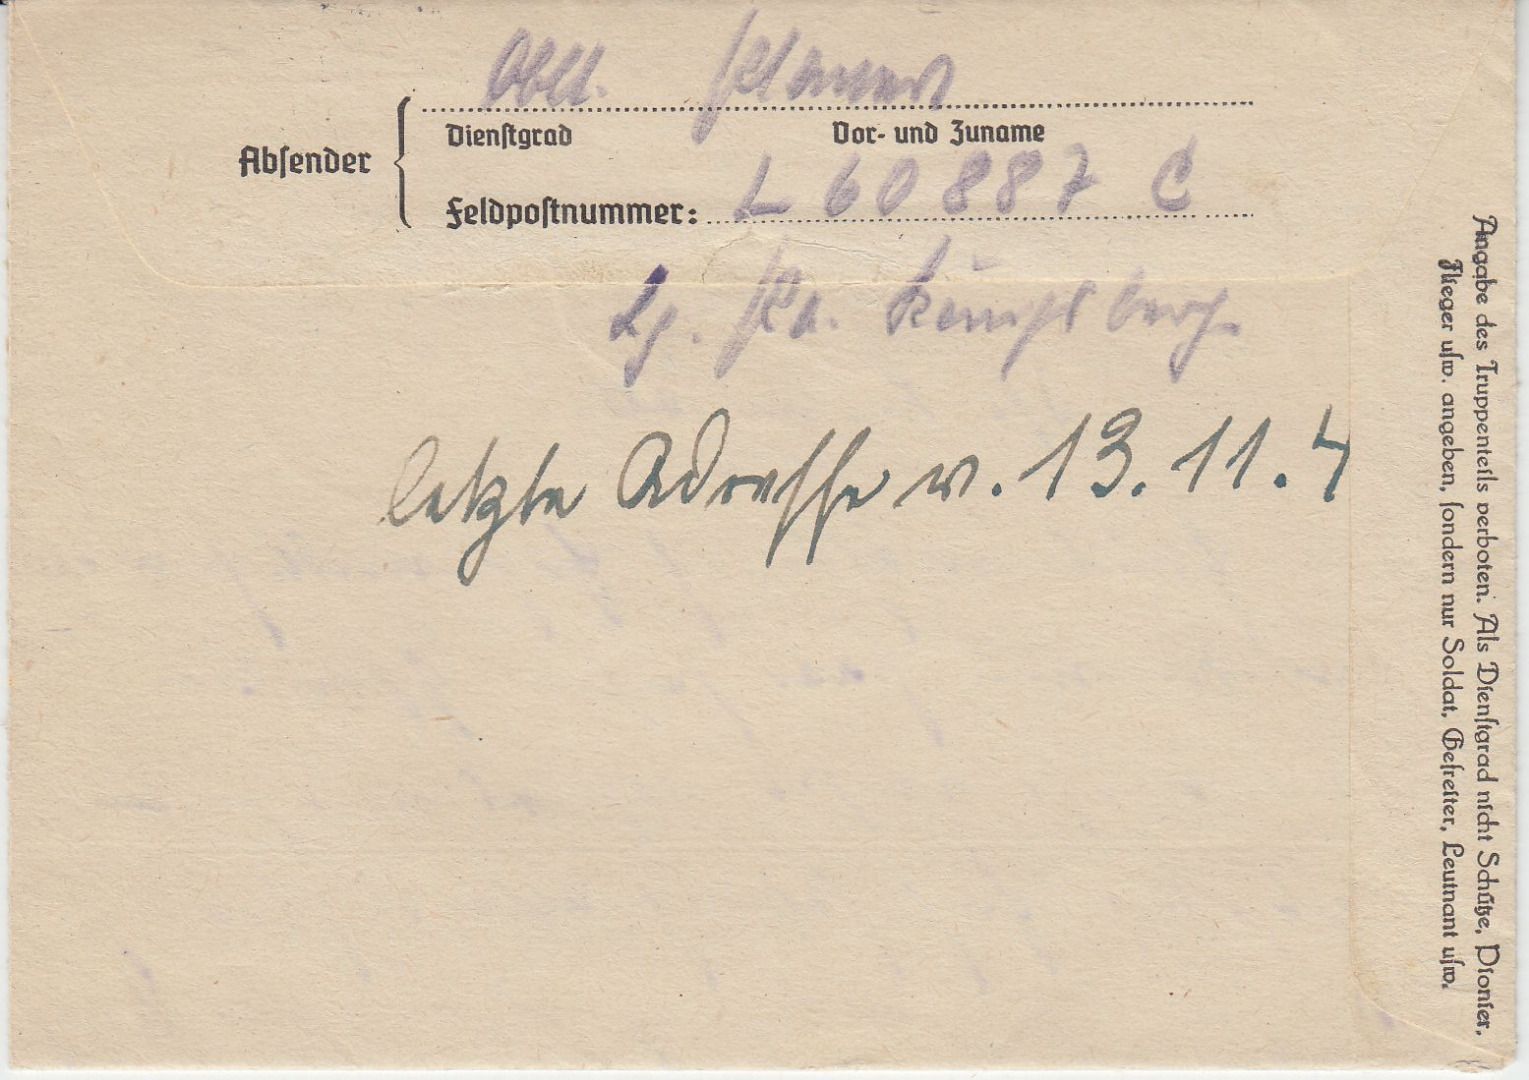 Oblt.
Dienstgrad Vor- und Zuname
Absender
Feldpostnummer: L 60887 C
Lg. Pa. Königsberg.
letzte Adresse v. 13.11.4
Angabe des Truppenteils verboten. Als Dienstgrad nicht Schütze, Pionier,
Flieger usw. angeben, sondern nur Soldat, Gefreiter, Leutnant usw.